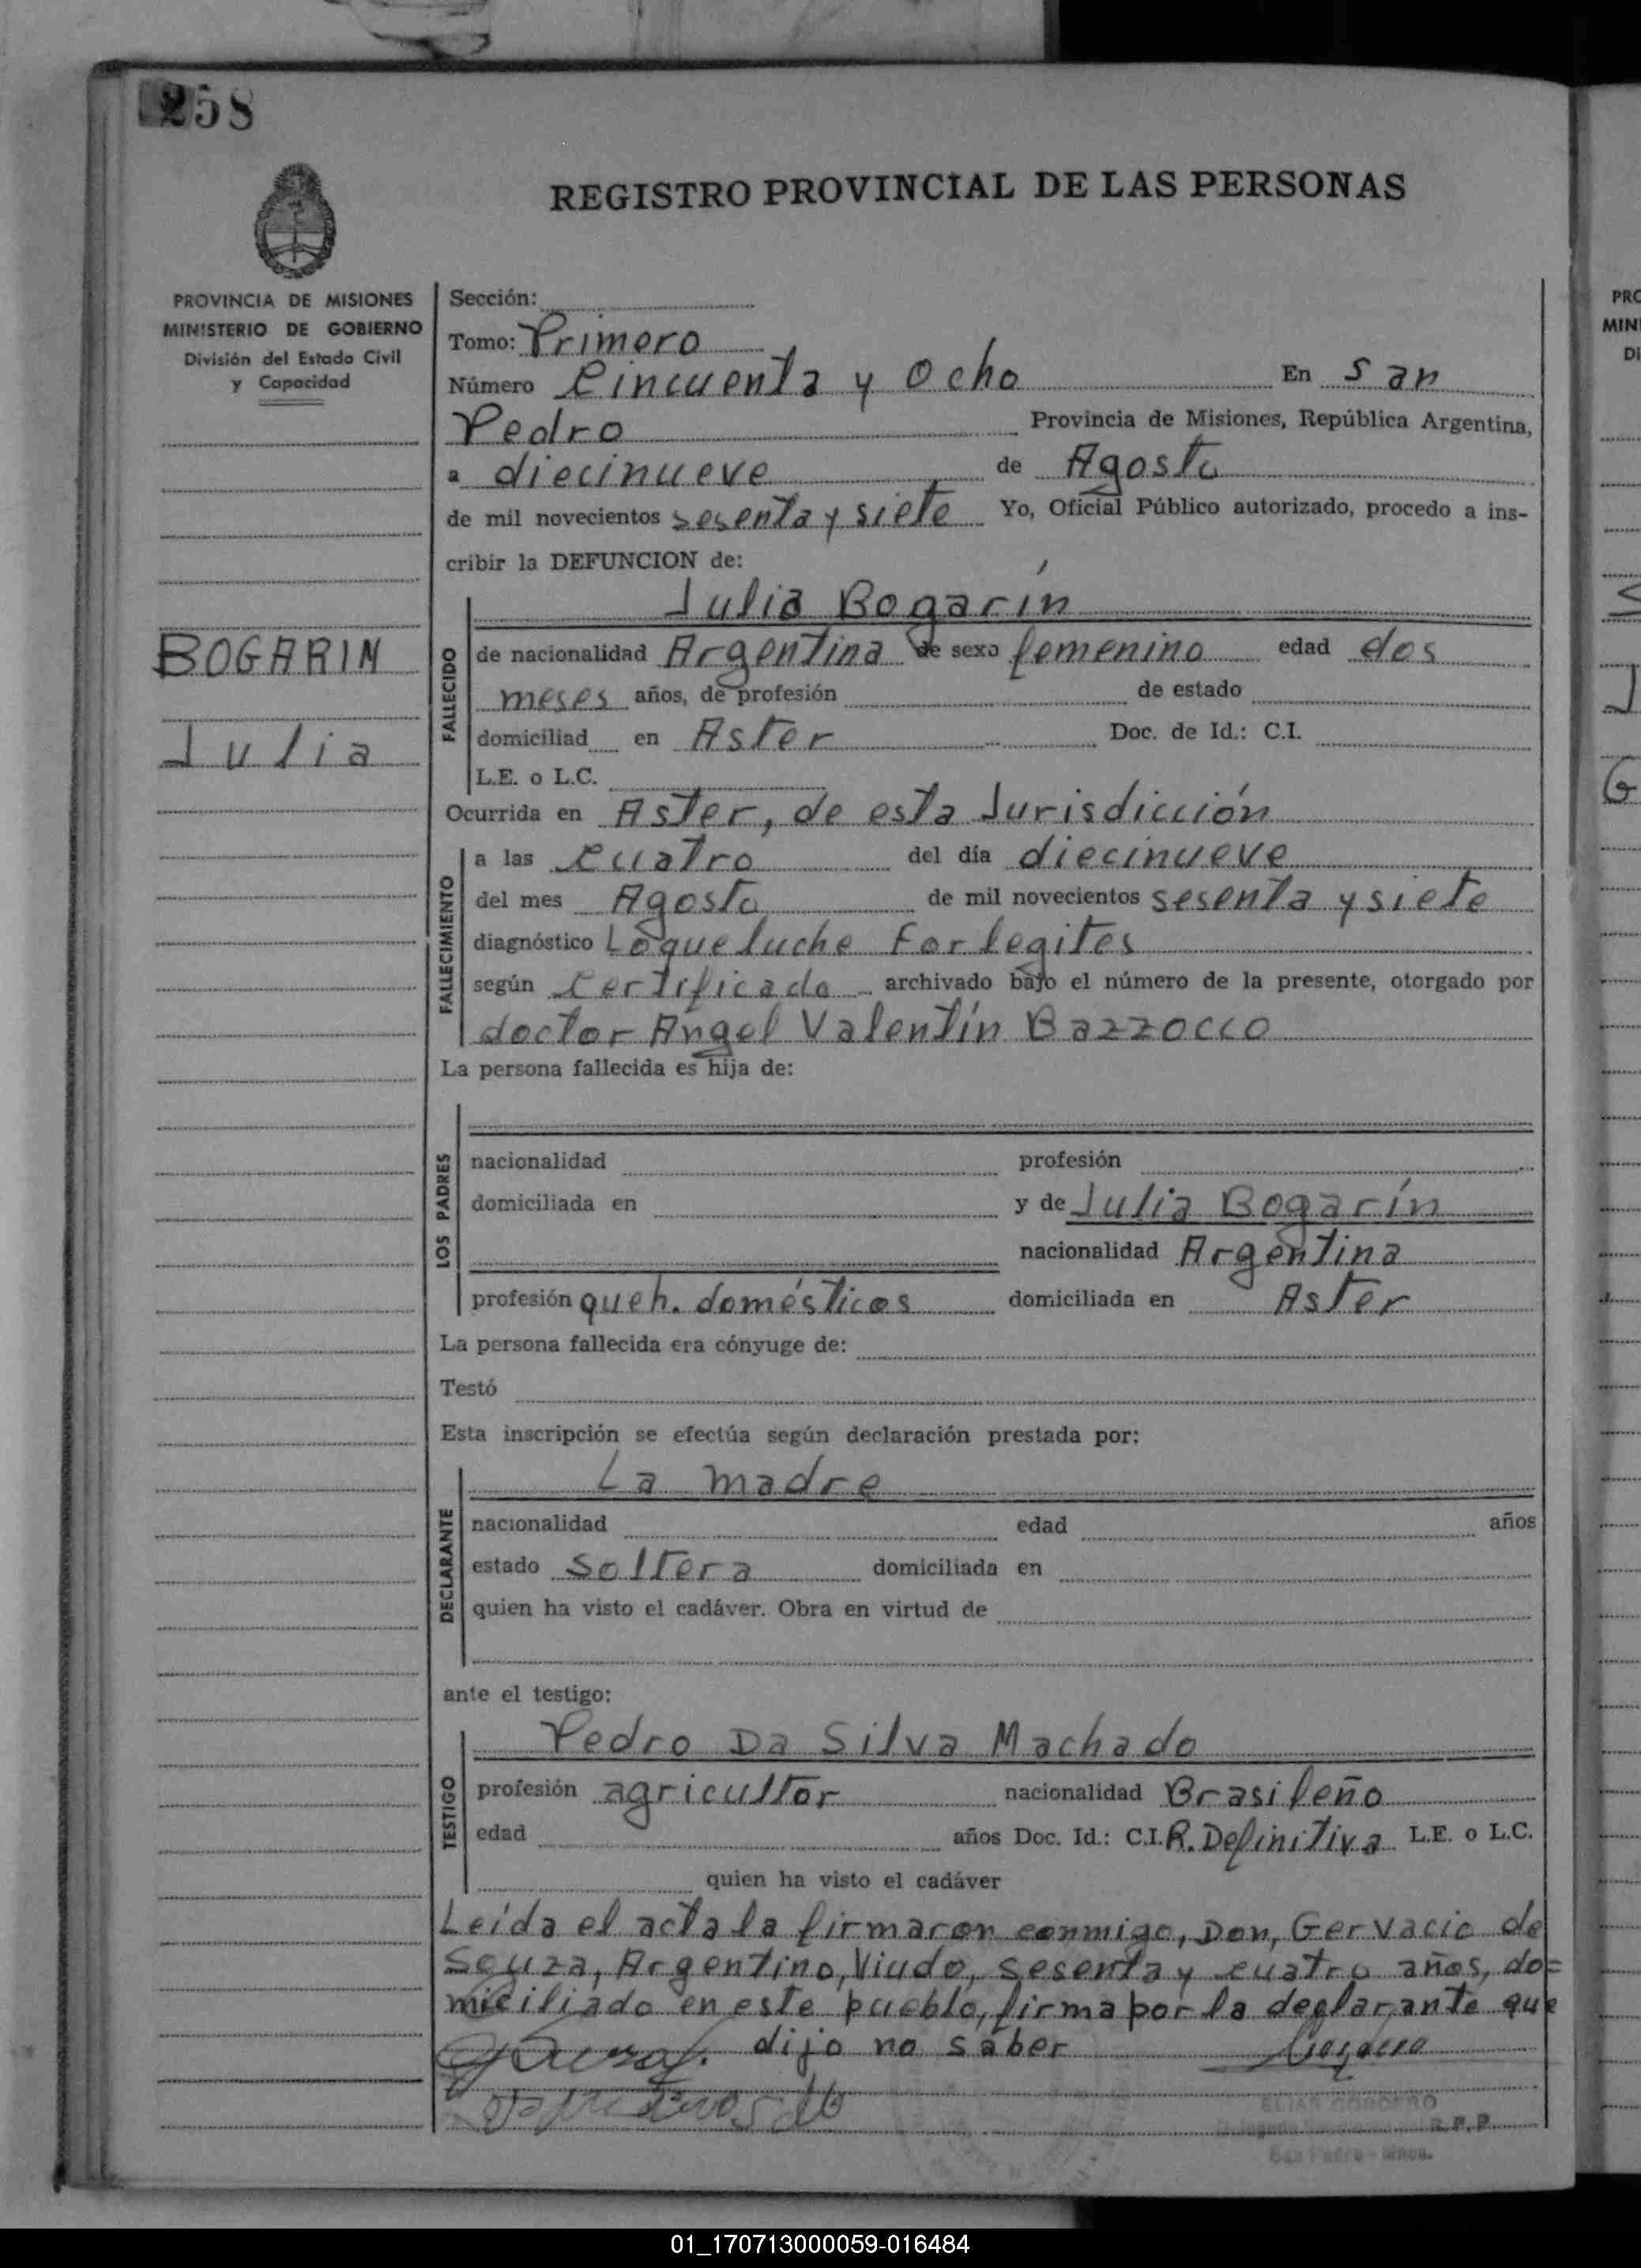 258
REGISTRO PROVINCIAL DE LAS PERSONAS
PROVINCIA DE MISIONES
MINISTERIO DE GOBIERNO
División del Estado Civil
y Capacidad
BOGARIN
Julia
Sección:
Tomo: Primero
Número Cincuenta y Ocho En San
Pedro Provincia de Misiones, República Argentina,
a diecinueve de Agosto
de mil novecientos sesenta y siete Yo, Oficial Público autorizado, procedo a ins-
cribir la DEFUNCION de:
Julia Bogarín
FALLECIDO
de nacionalidad Argentina de sexo femenino edad dos
meses años, de profesión de estado
domiciliad en Aster Doc. de Id.: C.I.
L.E. o L.C.
Ocurrida en Aster, de esta Jurisdicción
FALLECIMIENTO
a las cuatro del día diecinueve
del mes Agosto de mil novecientos sesenta y siete
diagnóstico Coqueluche
según Certificado archivado bajo el número de la presente, otorgado por
doctor Angel Valentín Bazzocco
La persona fallecida es hija de:
LOS PADRES
nacionalidad profesión
domiciliada en y de Julia Bogarín
nacionalidad Argentina
profesión queh. domésticos domiciliada en Aster
La persona fallecida era cónyuge de:
Testó
Esta inscripción se efectúa según declaración prestada por:
La madre
DECLARANTE
nacionalidad edad años
estado Soltera domiciliada en
quien ha visto el cadáver. Obra en virtud de
ante el testigo:
Pedro Da Silva Machado
TESTIGO
profesión agricultor nacionalidad Brasileño
edad años Doc. Id.: C.I. R. Definitiva L.E. o L.C.
quien ha visto el cadáver
Leída el acta la firmaron conmigo, Don, Gervacio de
Souza, Argentino, Viudo, sesenta y cuatro años, do=
miciliado en este pueblo, firma por la declarante que
dijo no saber
ELIAS CORDERO
San Pedro - Mnes.
PRO
MINI
Di
01_170713000059-016484